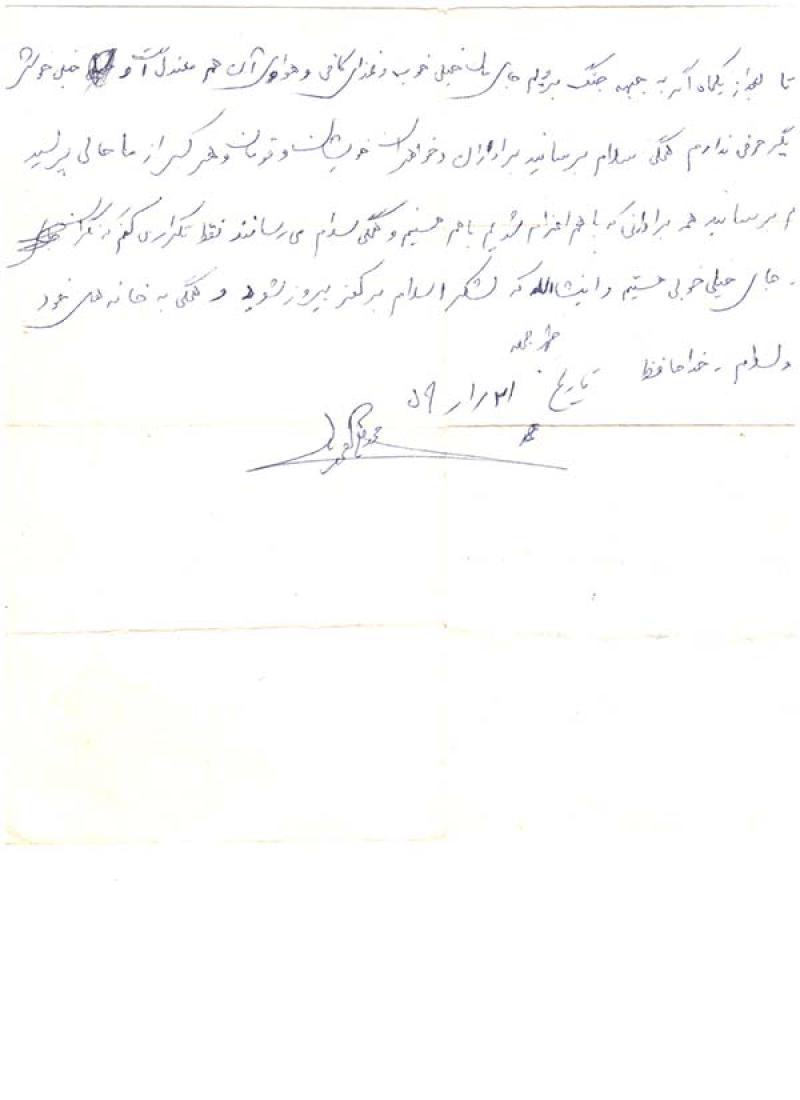 تا بعد از یکماه اگر به جبهه جنگ برویم جای ما خیلی خوب و غذای کافی و هوای آن هم معتدل است و خیلی خوش
یگر حرفی ندارم همگی سلام برسانید برادران و خواهران خویشان و قومان و هر کس از ما حالی پرسید
م برسانید همه برادرانی که با هم اعزام شدیم با هم هستیم و همگی سلام می رسانند فقط تکراری کنم که نگران
. جای خیلی خوبی هستیم و انشاالله که لشکر اسلام بر کفر پیروز شود و همگی به خانه های خود
ولسلام . خداحافظ
تاریخ ۵۹